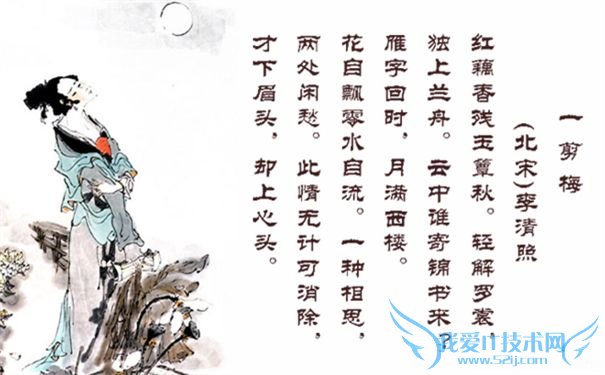 一剪梅
(北宋)李清照
红藕香残玉簟秋。轻解罗裳，
独上兰舟。云中谁寄锦书来？
雁字回时，月满西楼。
花自飘零水自流。一种相思，
两处闲愁。此情无计可消除，
才下眉头，却上心头。
我爱IT技术网
www.52ij.com